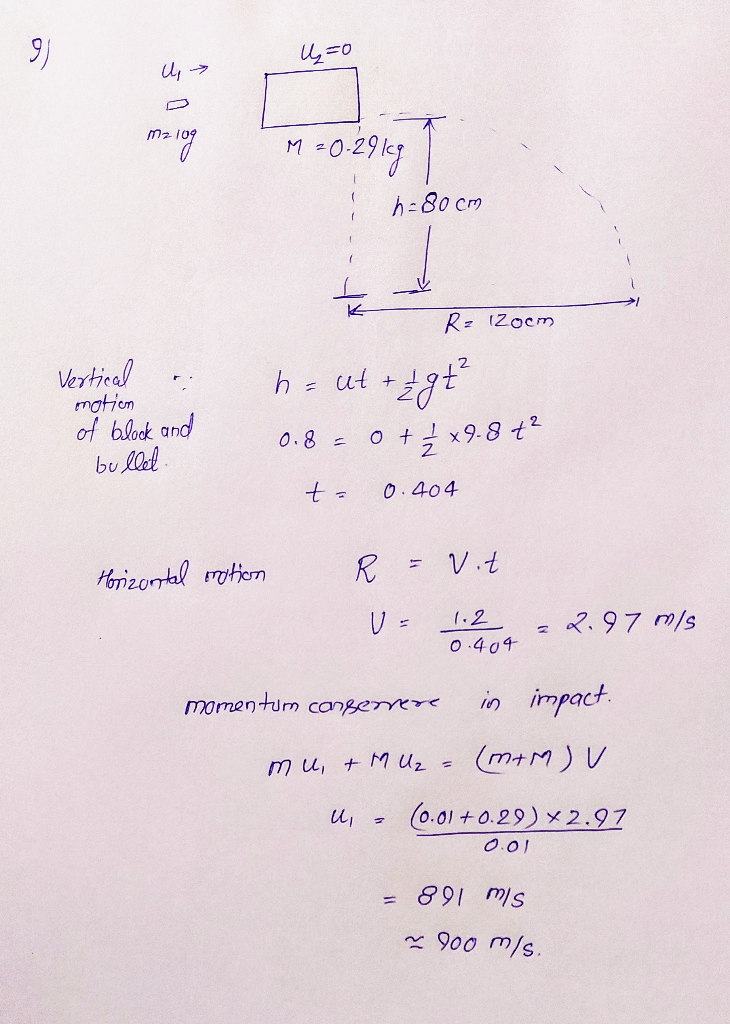 9)
U₂=0
U₁ →
m=10g
M = 0.29kg
h=80cm
R= 120cm
Vertical :
motion
of block and
bullet.
h = ut + ½gt²
0.8 = 0 + ½ x9.8 t²
t = 0.404
Horizontal motion
R = V.t
V = 1.2/0.404 = 2.97 m/s
momentum conserve in impact.
m u₁ + M U₂ = (m+M) V
U₁ = (0.01+0.29)×2.97/0.01
= 891 m/s
≈ 900 m/s.